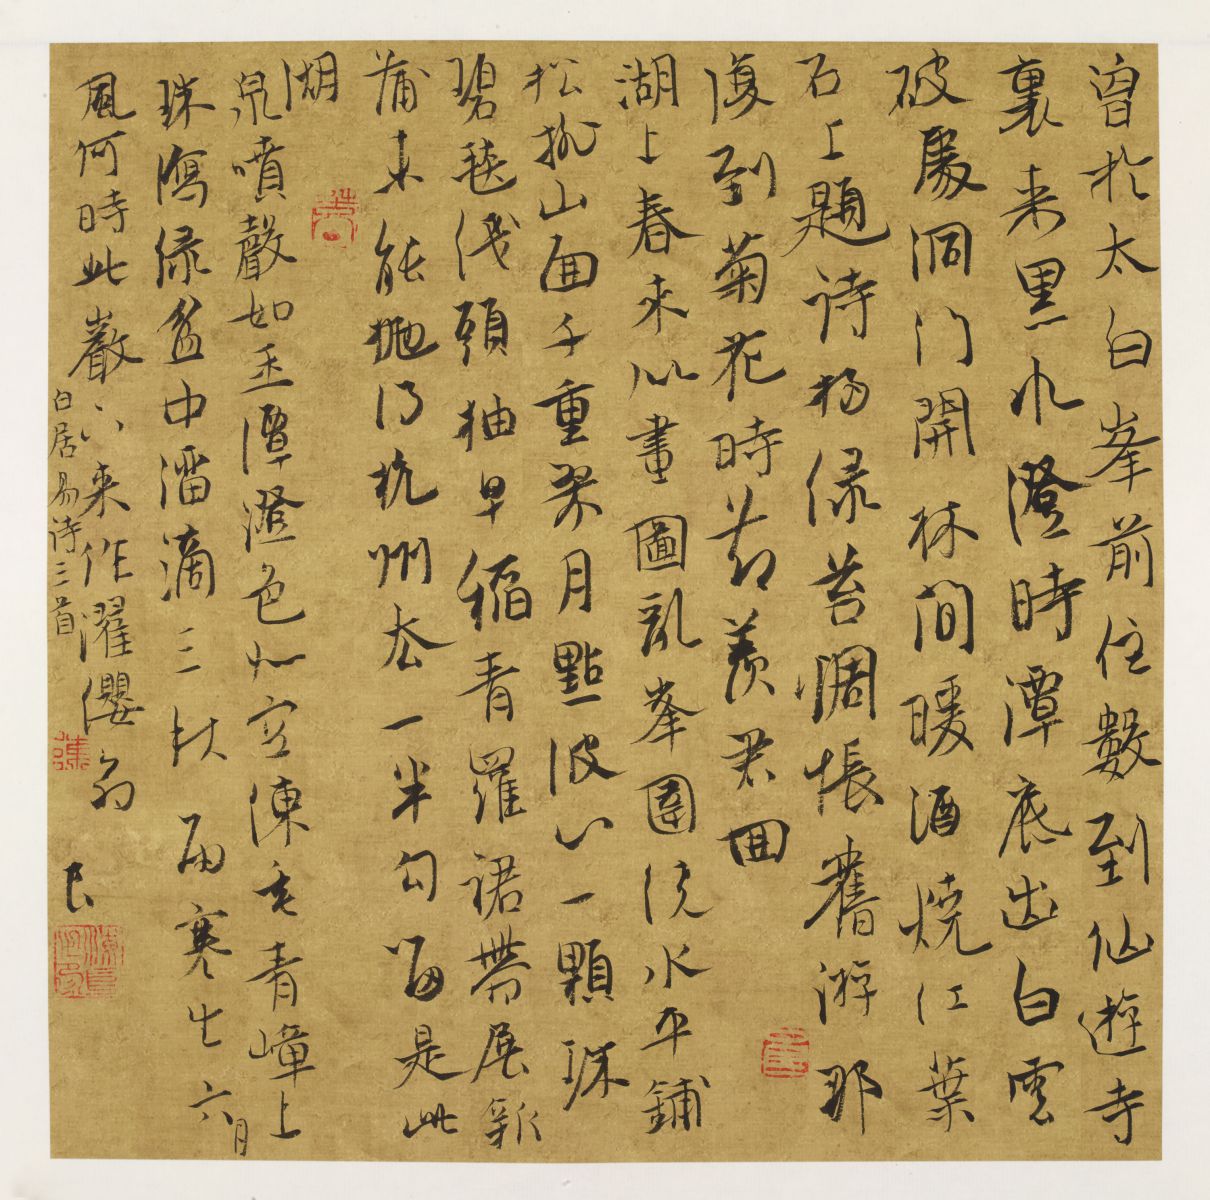 曾於太白峯前住數到仙遊寺
裏来黑水澄時潭底出白雲
破處洞门開林間暖酒燒红葉
石上題诗扫绿苔惆悵舊游那
復到菊花時节羡君回
湖上春来似畫圖乱峯围绕水平鋪
松排山面千重翠月點波心一顆珠
碧毯线頭抽早稲青羅裙帶展新
蒲未能抛得杭州去一半勾留是此
湖
泉噴聲如玉潭澄色似空練垂青嶂上
珠瀉绿盆中溜滴三秋雨寒生六月
風何時此巖下来作濯缨翁
白居易诗三首
良